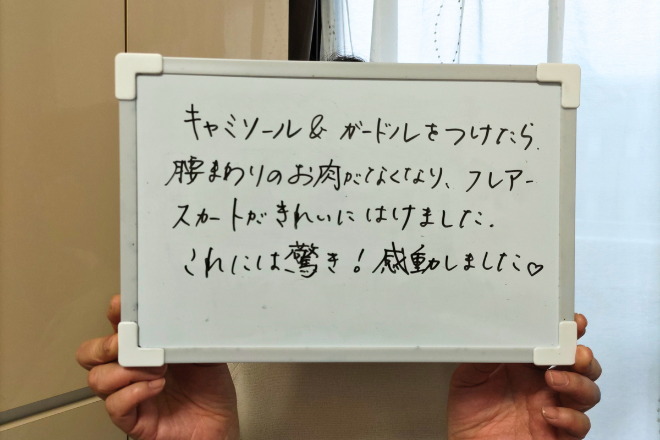 キャミソール＆ガードルをつけたら、
腰まわりのお肉がなくなり、フレアー
スカートがきれいにはけました。
これには驚き！感動しました♡